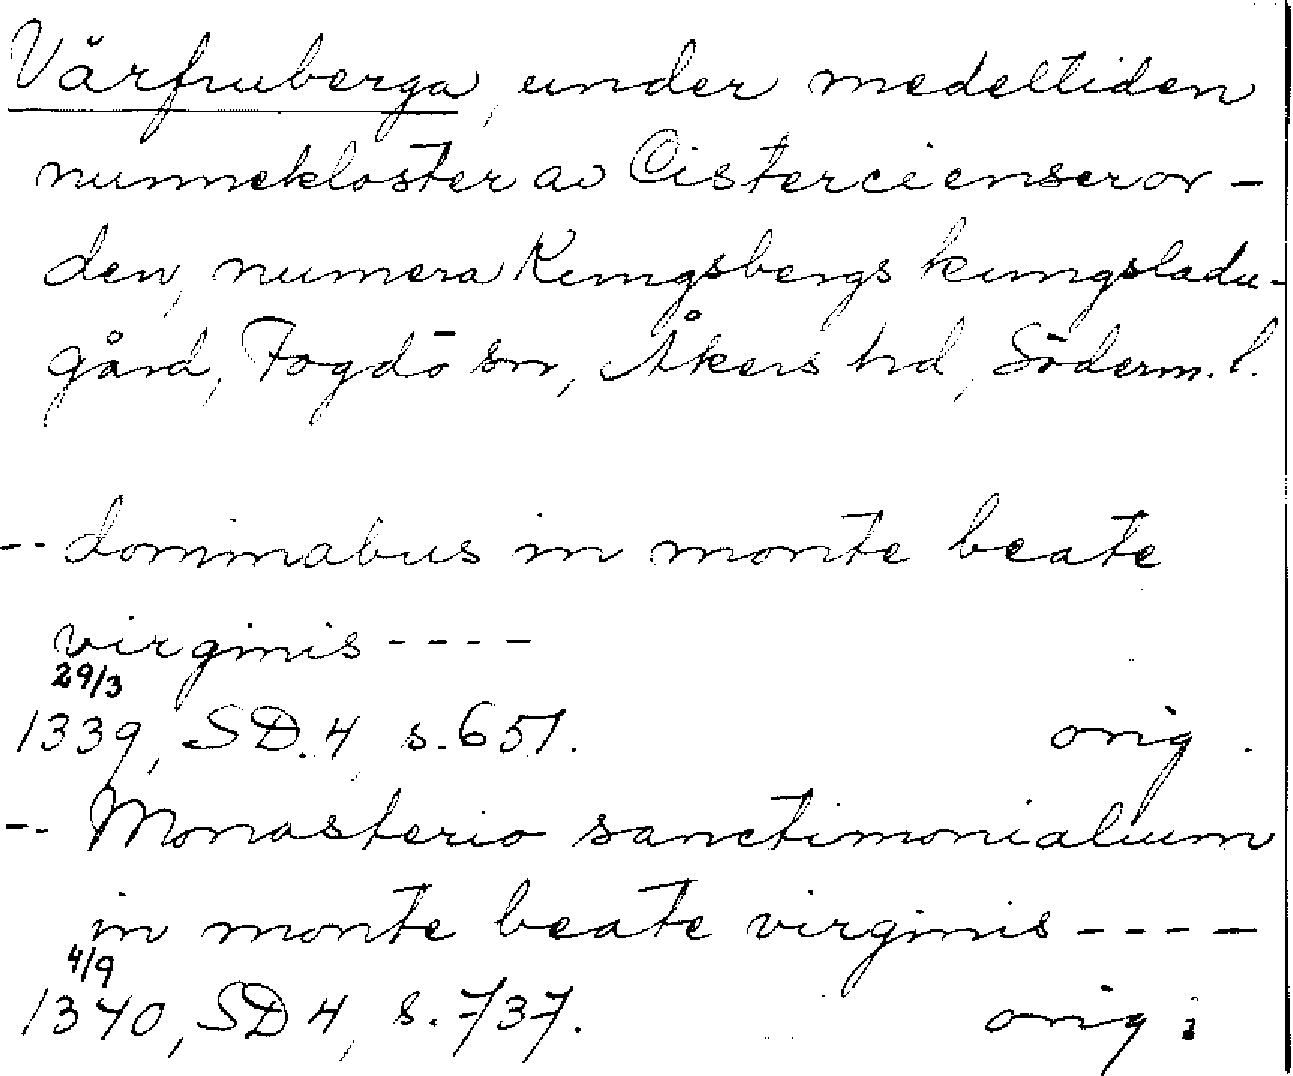 Vårfruberga, under medeltiden
nunnekloster av Cistercienseror-
den, numera Kungsbergs kungsladu-
gård, Fogdö sn, Åkers hd, Söderm. l.
-- dominabus in monte beate
virginis ----
29/3
1339, SD. 4, s. 651. orig.
-- Monasterio sanctimonialium
in monte beate virginis ----
4/9
1340, SD 4, s. 737. orig;